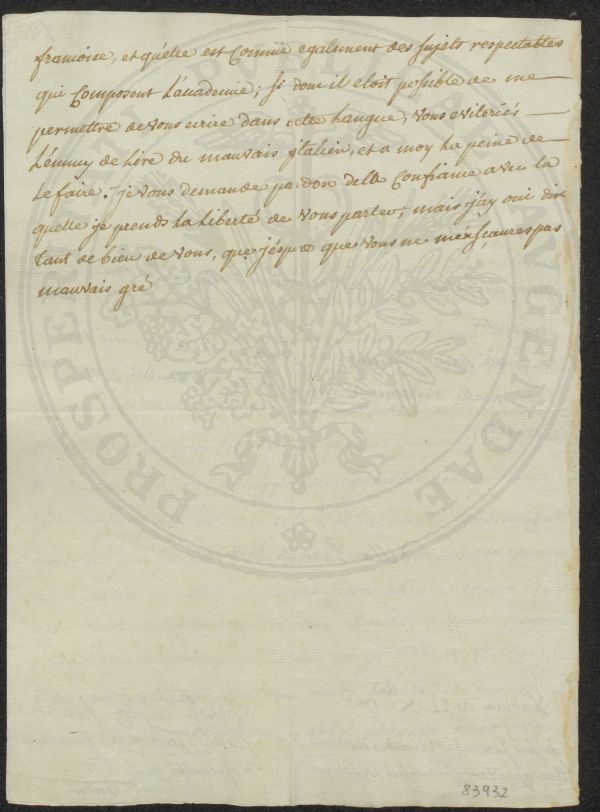 francoise, et quelle est Connue egalement des sujets respectables
qui Composent L'academie; Si donc il etoit possible de me
permettre de vous ecrire dans cette Langue, vous eviteriés
L'ennuy de Lire du mauvais jtalien, et a moy La peine de
Le faire. je vous demande pardon dela Confiance avec La
quelle je prends La Liberté de vous parler; mais j'ay oui dire
tant de bien de vous, que j'espere que vous ne m'en scaures pas
mauvais gré
PROSPERITATI PUBLICAE AUGENDAE
83932